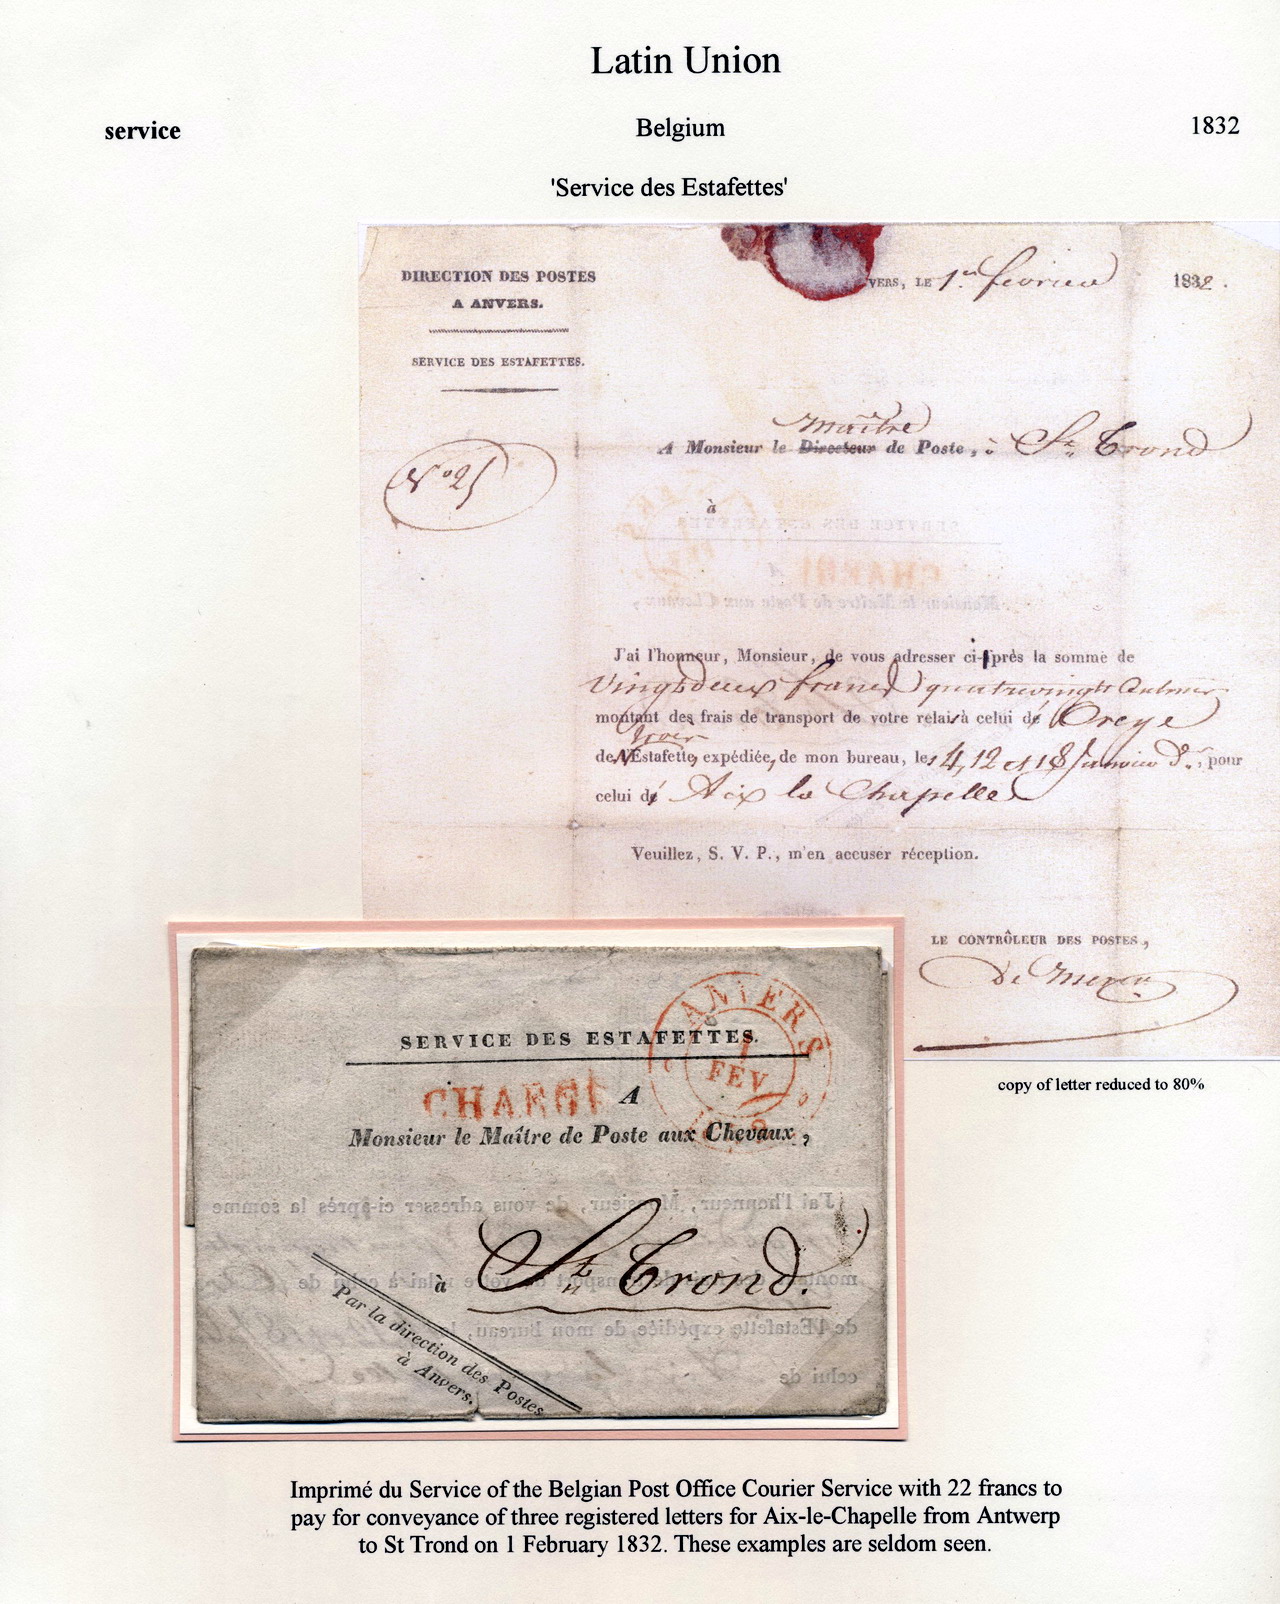 Latin Union
service
Belgium
1832
'Service des Estafettes'
DIRECTION DES POSTES
A ANVERS.
SERVICE DES ESTAFETTES.
VERS, LE 1er février 1832.
Maître
A Monsieur le Directeur de Poste, à St Trond
No 25
à
J'ai l'honneur, Monsieur, de vous adresser ci-après la somme de
Vingtdeux francs quatrevingts Centimes
montant des frais de transport de votre relais à celui de Oreye
trois
de l'Estafette, expédiée, de mon bureau, les 4, 12 et 18 Janvier Dr, pour
celui de Aix la Chapelle
Veuillez, S. V. P., m'en accuser réception.
LE CONTRÔLEUR DES POSTES,
copy of letter reduced to 80%
ANVERS
1
FEV
SERVICE DES ESTAFETTES.
CHARGÉ
A
Monsieur le Maître de Poste aux Chevaux,
à St Trond.
Par la direction des Postes
à Anvers.
Imprimé du Service of the Belgian Post Office Courier Service with 22 francs to
pay for conveyance of three registered letters for Aix-le-Chapelle from Antwerp
to St Trond on 1 February 1832. These examples are seldom seen.